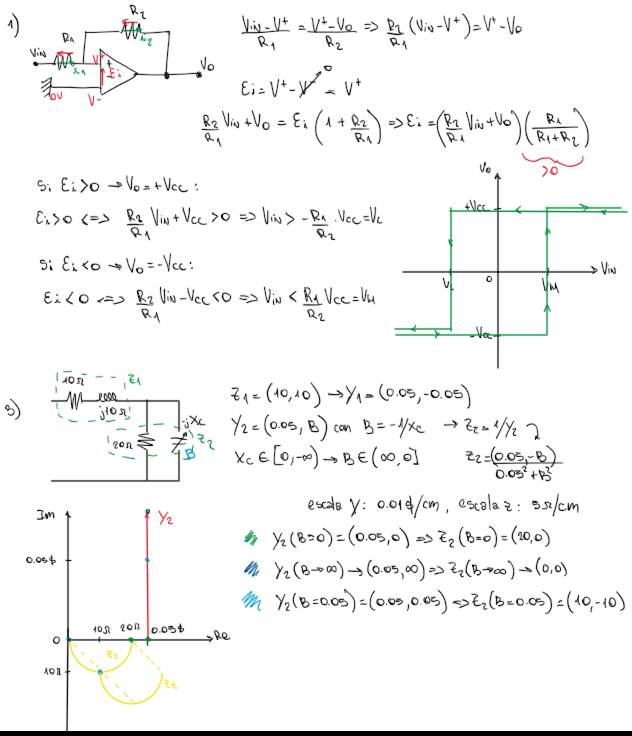 1)
R2
R1
Vin
i2
i1
V+
+
Ei
-
V-
0V
Vo
(Vin-V+)/R1 = (V+-Vo)/R2 => R2/R1 (Vin-V+) = V+-Vo
Ei = V+ - V- = V+
0
R2/R1 Vin + Vo = Ei (1 + R2/R1) => Ei = (R2/R1 Vin + Vo) (R1/(R1+R2))
>0
Si Ei>0 → Vo=+Vcc:
Ei>0 <=> R2/R1 Vin + Vcc >0 => Vin > -R1/R2 . Vcc = VL
Si Ei<0 → Vo=-Vcc:
Ei<0 <=> R2/R1 Vin - Vcc <0 => Vin < R1/R2 Vcc = VM
Vo
+Vcc
VL
0
VM
Vin
-Vcc
3)
10Ω
Z1
j10Ω
jXc
20Ω
Z2
B
Z1 = (10,10) → Y1 = (0.05,-0.05)
Y2 = (0.05, B) con B = -1/Xc → Z2 = 1/Y2
Xc ∈ [0,-∞) → B ∈ (∞,0]
Z2 = (0.05,-B)/(0.05²+B²)
escala Y: 0.01℧/cm, escala Z: 5Ω/cm
Y2(B=0) = (0.05,0) => Z2(B=0) = (20,0)
Y2(B→∞) → (0.05,∞) => Z2(B→∞) → (0,0)
Y2(B=0.05) = (0.05,0.05) => Z2(B=0.05) = (10,-10)
Im
Y2
0.05℧
10Ω
20Ω
0.05℧
Re
0
Z2
10Ω
Zt